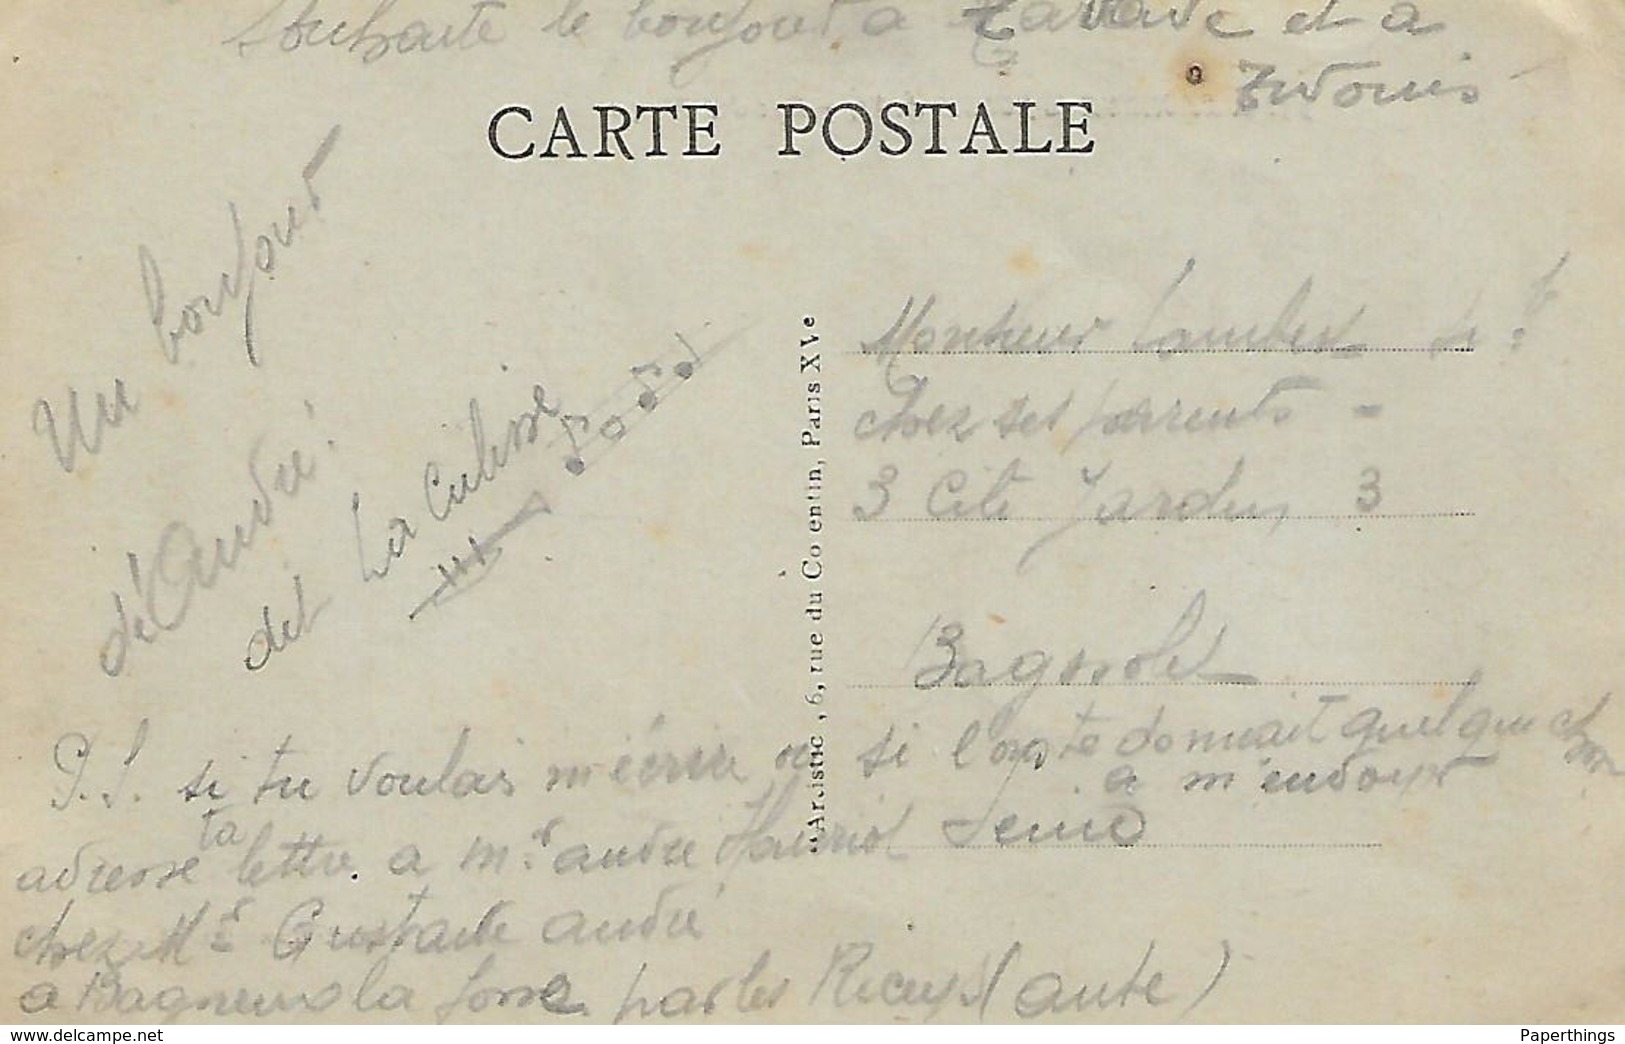 Souhaite le bonjour a et a
CARTE POSTALE
Un bonjour
dé André!
det La Culisse
"Artistic, 6, rue du Co entin, Paris XVe
Monsieur Lambert
chez ses parrents -
3 Cité Jardins 3
Bagnolet
Seine
P.S. si tu voulais m'écrire ou si l'on te donnait quelque chose
a m'envoyer
adresse ta lettre. a Mr. andré Hanriot
chez Mr Gustave andré
a Bagneux la fosse par les Riceys (aube)
delcampe.net
Paperthings